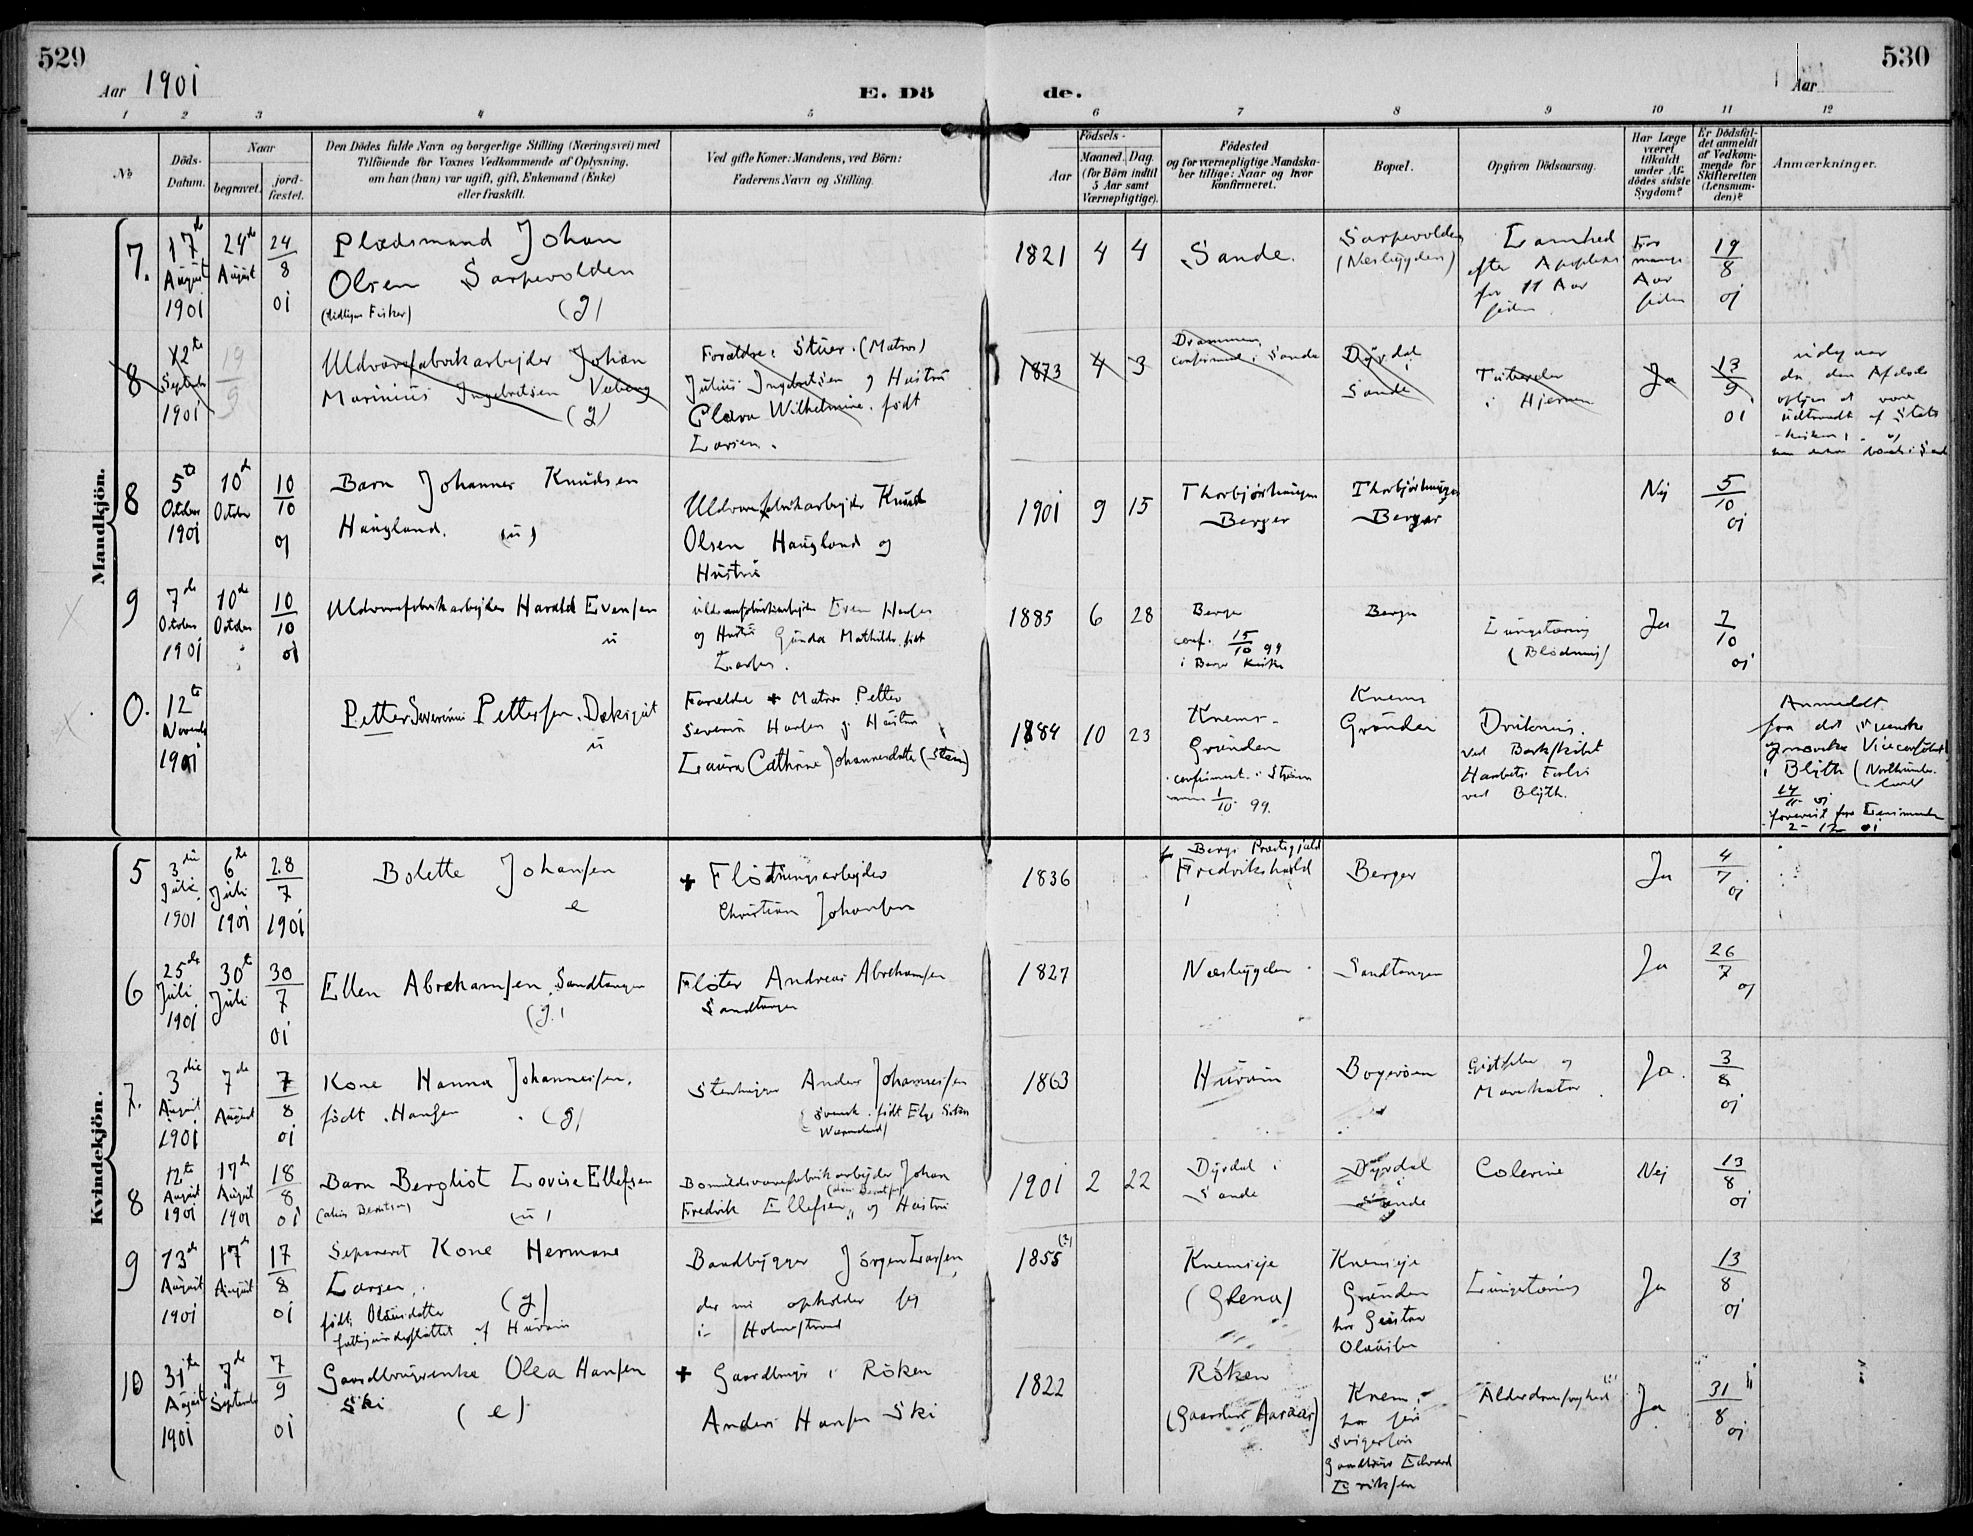 529
530
Aar 1901
E. Dö
de.
Aar
1 2 3 4 5 6 7 8 9 10 11 12
No
Döds-Datum.
Naar
begravet.
jord-fæstet.
Den Dödes fulde Navn og borgerlige Stilling (Næringsvei) med
Tilföiende for Voxnes Vedkommende af Oplysning,
om han (hun) var ugift, gift, Enkemand (Enke)
eller fraskilt.
Ved gifte Koner: Mandens, ved Börn:
Faderens Navn og Stilling.
Födsels-
Aar
Maaned. Dag.
(for Börn indtil
5 Aar samt
Værnepligtige).
Födested
og for værnepligtige Mandska-
ber tillige: Naar og hvor
konfirmeret.
Bopæl.
Opgiven Dödsaarsag.
Har Læge
været
tilkaldt
under Af-
dödes sidste
Sygdom?
Er Dödsfal-
det anmeldt
af Vedkom-
mende for
Skifteretten
(Lensman-
den)?
Anmærkninger.
Mandkjön.
7. 17de August 1901
24de August
24/8 01
Pladsmand Johan
Olsen Sarpevolden
(tidligere Fisker) (g)
1821 4 4
Sande.
Sarpevolden
(Nesbygden)
Lamhed
efter
for 11 Aar
siden
For
mange
Aar
siden
19/8 01
8 12te September 1901
19/9
Uldvarefabrikarbejder Johan
Marinius Ingebretsen Veberg
(g)
Forældre: Stuer. (Matros)
Julius Ingebretsen og Hustru
Clara Wilhelmine født
Larsen.
1873 4 3
Drammen
confirmert i Sande
Dyrdal
Sande
Tuberkler
i Hjernen
Ja
13/9 01
udgaar
da den Afdøde
8 5te October 1901
10de October
10/10 01
Barn Johannes Knudsen
Haugland. (u)
Uldvarefabrikarbejder Knud
Olsen Haugland og
Hustru
1901 9 15
Thorbjørnhaugen
Berger
Thorbjørnhaugen
Berger
Nej
5/10 01
9 7de October 1901
10de October
10/10 01
Uldvarefabrikarbejder Harald Evensen
u
Uldvarefabrikarbejder Even
og Hustru Gunda Mathilde født
1885 6 28
Berger
conf. 15/10 99
i Berger Kirke
Berger
Lungetæring
(Blødning)
Ja
7/10 01
0. 12te November 1901
Petter Severinius Pettersen. Dæksgut
u
Forældre + Matros Petter
Severin og Hustru
Laura Cathrine Johannesdatter (Steen)
1884 10 23
Knems-
Grunden
confirmert i
1/10 99.
Knems
Grunden
Druknet.
ved Barkskibet
ved Blyth.
Anmeldt
fra det svenske
og norske Viceconsulat
i Blyth (Northumber-
land
14/11 01
2-12-01
Kvindekjön.
5 3die Juli 1901
6te Juli 1901
28/7 1901
Bolette Johansen
e
+ Flødningsarbejder
Christian Johansen
1836
f. Berg Præstegjæld
Fredrikshald
Berger
Ja
4/7 01
6 25de Juli 1901
30te Juli
30/7 01
Ellen Abrahamsen, Sandtangen
(g.)
Fløter Andreas Abrahamsen
Sandtangen
1827
Nesbygden
Sandtangen
Ja
26/7 01
7. 3die August 1901
7de August
7/8 01
Kone Hanna Johannesen,
født Hansen (g)
Stenhugger Anders Johannesen
(svensk. født
Wærmland)
1863
Hurum
Bogerøen
Gigtfeber og
Mavekatar
Ja.
3/8 01
8 12te August 1901
17de August 1901
18/8 01
Barn Bergliot Lovise Ellefsen
(alias Berntsen) (u)
Bomuldsvarefabrikarbejder Johan
(alias Berntsen)
Fredrik Ellefsen og Hustru
1901 2 22
Dyrdal i
Sande
Dyrdal
Sande
Colerine
Nej
13/8 01
9 13de August 1901
17de August
17/8 01
Separeret Kone Hermane
Larsen,
født Olausdatter (g)
fattigunderstøttet af Hurum
Baadbygger Jörgen Larsen,
der nu opholder sig
i Holmestrand
1855 (?)
Knemseje
(Glena)
Knemseje
Grunden
hos Gustav
Olaussen
Lungetæring
Ja
13/8 01
10 31te August 1901
7de September
7/9 01
Gaardbrugerenke Olea Hansen
Ski (e)
+ Gaardbruger i Röken
Anders Hansen Ski
1822
Röken
(Gaarden Aaraas)
Knem,
hos sin
Svigersøn
Gaardbruger Edvard
Eriksen
Alderdomssvaghed
Ja
31/8 01